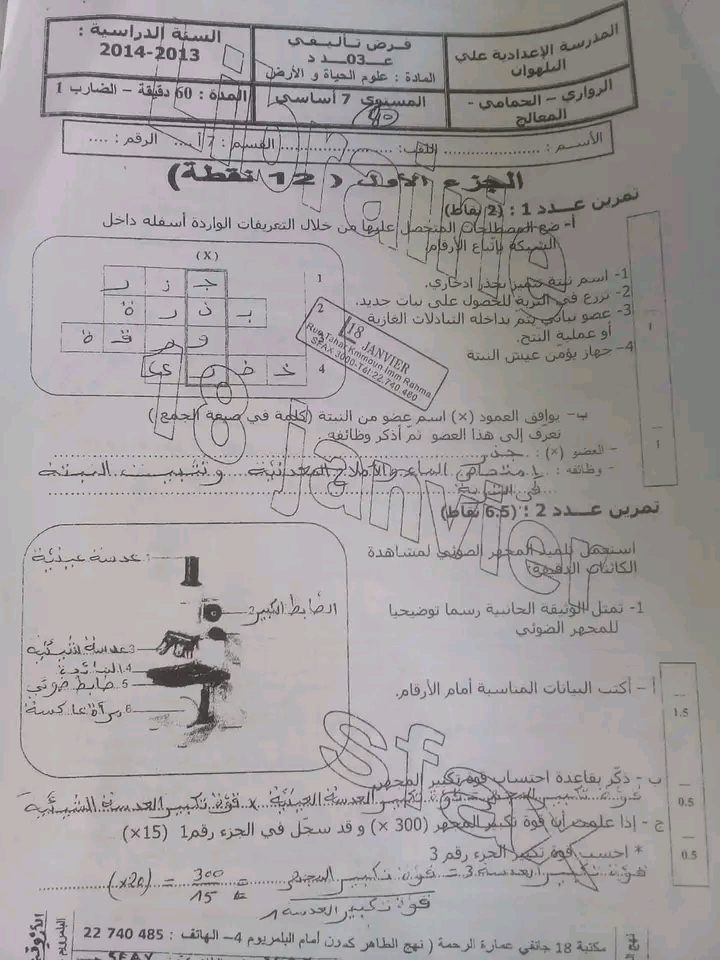 المدرسة الإعدادية علي البلهوان
الرواري – الحمامي - المعالج
فـرض تـأليـفـي
عـــ03ـــدد
المادة : علوم الحياة و الأرض
المستوى 7 أساسي
السنة الدراسية :
2014-2013
المدة : 60 دقيقة – الضارب 1
الأسم : .................. اللقب: .................. القسم : 7 أ .... الرقم : ....
الجزء الأول ( 12 نقطة)
تمرين عـــدد 1 : (2 نقاط)
أ- ضع المصطلحات المتحصل عليها من خلال التعريفات الواردة أسفله داخل
الشبكة بإتباع الأرقام.
1- اسم نبتة تتميز بجذر ادخاري.
2- تزرع في التربة للحصول على نبات جديد.
3- عضو نباتي يتم بداخله التبادلات الغازية
أو عملية النتح.
4- جهاز يؤمن عيش النبتة
(X)
1 جـ ز ر
2 بـ ذ ر ة
و ر قـ ة
4 خـ ضـ ر ي
18 JANVIER
Rue Tahar Kmmoun Imm Rahma
SFAX 3000-Tél:22.740.480
1
1
ب- يوافق العمود (×) اسم عضو من النبتة (كلمة في صيغة الجمع.)
تعرّف إلى هذا العضو ثمّ أذكر وظائفه.
- العضو (×) : جذر
- وظائفه : امتصاص الماء والأملاح المعدنية وتثبيت النبتة
في التربة
تمرين عـــدد 2 : (6.5 نقاط)
استعمل تلميذ المجهر الضوئي لمشاهدة
الكائنات الدقيقة
1- تمثل الوثيقة الجانبية رسما توضيحيا
للمجهر الضوئي
1 عدسة عينيّة
2 الضابط الكبير
3 عدسة شيئيّة
5 ضابط ضوئي
6 مرآة عاكسة
أ – أكتب البيانات المناسبة أمام الأرقام.
1.5
ب - ذكّر بقاعدة احتساب قوة تكبير المجهر
قوّة تكبير المجهر = قوّة تكبير العدسة العينيّة × قوّة تكبير العدسة الشيئيّة
0.5
ج - إذا علمت أن قوة تكبير المجهر (300 ×) و قد سجّل في الجزء رقم1 (15×)
* احسب قوة تكبير الجزء رقم 3
0.5
قوّة تكبير العدسة 3 = قوّة تكبير المجهر = 300 = (×20)
قوّة تكبير العدسة 1 15
18 janvier sfax
مكتبة 18 جانفي عمارة الرحمة ( نهج الطاهر كمون أمام البلمريوم 4– الهاتف : 485 740 22
SFAX